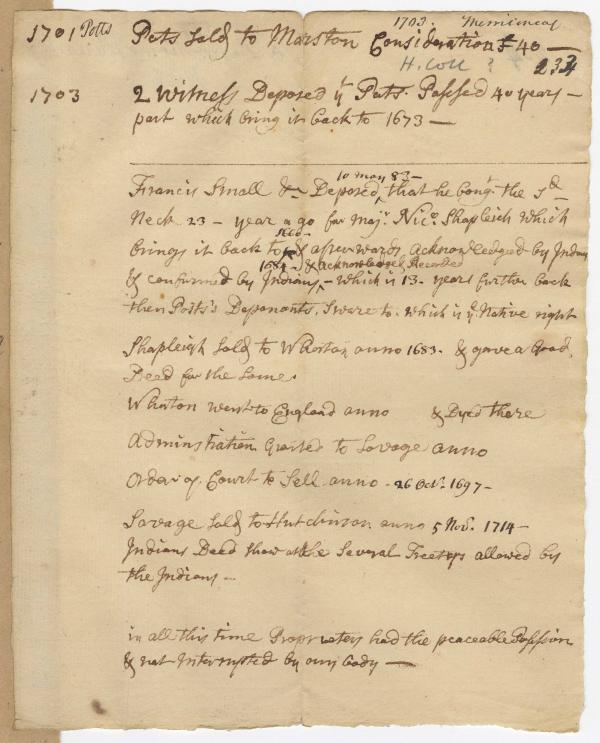 1703. Merriconeag
1701 Potts Pots Sold to Marston Consideration £ 40 —
H. Coll ? 233
1703 2 Witness Deposed yt Pots. Possed 40 years —
part which bring it back to 1673 —
10 may 83 —
Francis Small &c Deposed, that he bougt. the sd
Neck 23 — year ago for Majr. Nico. Shapleigh which
1660 —
brings it back to & afterwards acknowledged by Indians
1684 — & acknowledged, Recorded
& confirmed by Indians, — which is 13 - years further back
then Potts's Deponants, Sware to. which is ye. Native right
Shapleigh Sold to Wharton anno 1683. & gave a Good
Deed for the Same.
Wharton went to England anno & Dyed there
Adminstration Granted to Savage anno
Order of Court to Sell anno - 26 Oct. 1697 —
Savage Sold to Hutchinson anno 5 Nov. 1714 —
Indians Deed the Several Treetys allowed by
the Indians —
in all this time Proprieters had the peaceable Possesion
& not Interrupted by any body —